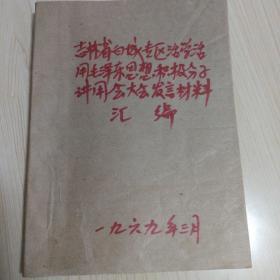 吉林省白城专区活学活
用毛泽东思想积极分子
讲用会大会发言材料
汇编
一九六九年三月